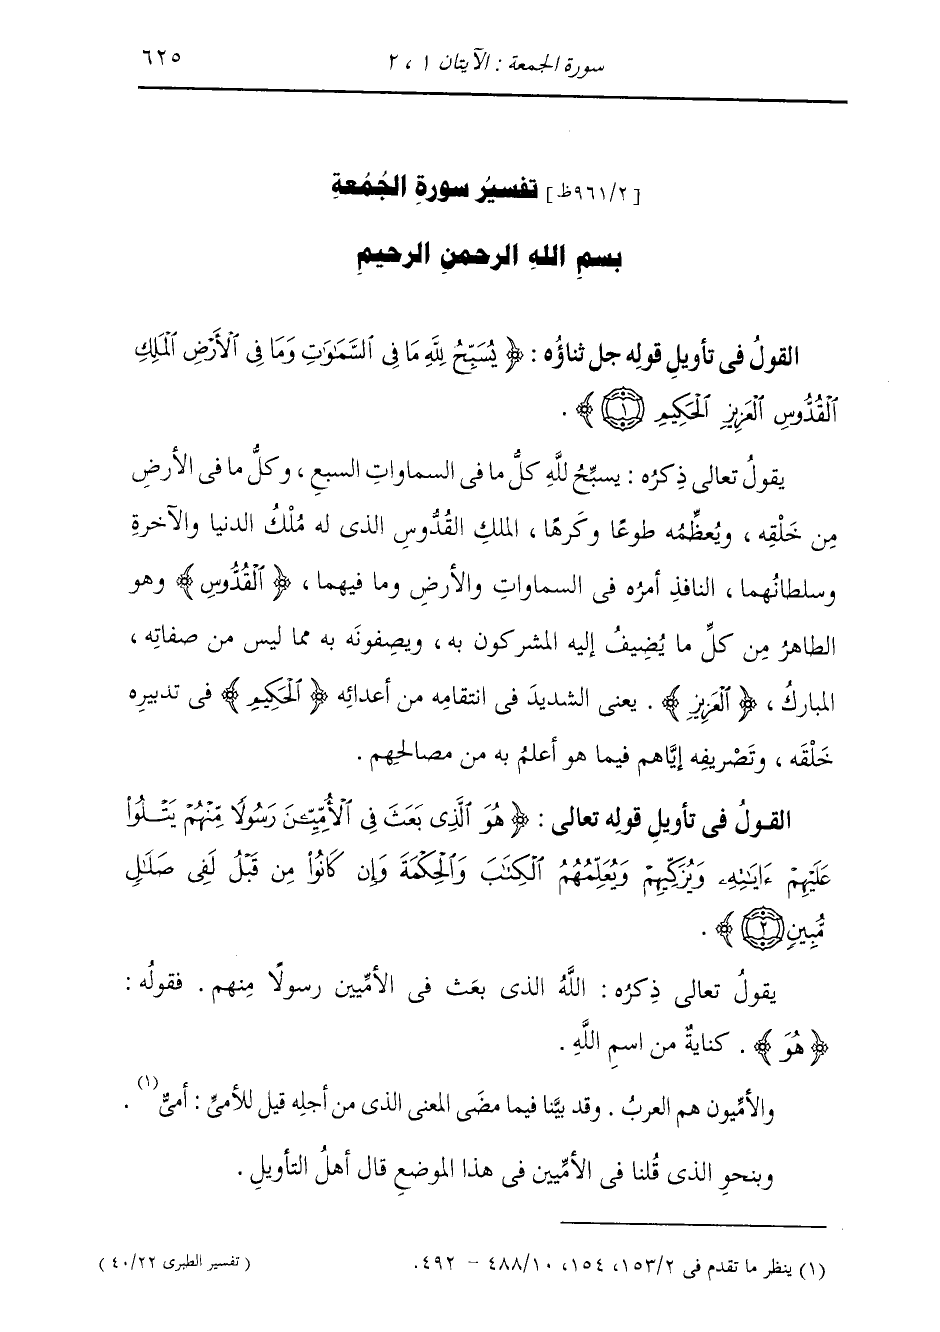 سورة الجمعة : الآيتان ١ ، ٢ ٦٢٥
[٩٦١/٢ظ] تفسيرُ سورةِ الجُمُعةِ
بسمِ اللهِ الرحمنِ الرحيمِ
القولُ فى تأويلِ قولِه جل ثناؤُه : ﴿ يُسَبِّحُ لِلَّهِ مَا فِى ٱلسَّمَٰوَٰتِ وَمَا فِى ٱلْأَرْضِ ٱلْمَلِكِ
ٱلْقُدُّوسِ ٱلْعَزِيزِ ٱلْحَكِيمِ ١ ﴾ .
يقولُ تعالى ذِكرُه : يسبِّحُ للَّهِ كلُّ ما فى السماواتِ السبعِ ، وكلُّ ما فى الأرضِ
مِن خَلْقِه ، ويُعظِّمُه طوعًا وكَرهًا ، الملكِ القُدُّوسِ الذى له مُلْكُ الدنيا والآخرةِ
وسلطانُهما ، النافذِ أمرُه فى السماواتِ والأرضِ وما فيهما ، ﴿ ٱلْقُدُّوسِ ﴾ وهو
الطاهرُ مِن كلِّ ما يُضِيفُ إليه المشركون به ، ويصِفونَه به مما ليس من صفاتِه ،
المباركُ ، ﴿ ٱلْعَزِيزِ ﴾ . يعنى الشديدَ فى انتقامِه من أعدائِه ﴿ ٱلْحَكِيمِ ﴾ فى تدبيرِه
خَلْقَه ، وتَصْريفِه إيَّاهم فيما هو أعلمُ به من مصالحِهم .
القولُ فى تأويلِ قولِه تعالى : ﴿ هُوَ ٱلَّذِى بَعَثَ فِى ٱلْأُمِّيِّـۧنَ رَسُولًا مِّنْهُمْ يَتْلُوا۟
عَلَيْهِمْ ءَايَٰتِهِۦ وَيُزَكِّيهِمْ وَيُعَلِّمُهُمُ ٱلْكِتَٰبَ وَٱلْحِكْمَةَ وَإِن كَانُوا۟ مِن قَبْلُ لَفِى ضَلَٰلٍ
مُّبِينٍ ٢ ﴾ .
يقولُ تعالى ذِكرُه : اللَّهُ الذى بعَث فى الأمِّيين رسولًا مِنهم . فقولُه :
﴿ هُوَ ﴾ . كنايةٌ من اسمِ اللَّهِ .
والأمِّيون هم العربُ . وقد بيَّنا فيما مضَى المعنى الذى من أجلِه قيل للأمىِّ : أمىٌّ (١) .
وبنحوِ الذى قُلنا فى الأمِّيين فى هذا الموضعِ قال أهلُ التأويلِ .
(١) ينظر ما تقدم فى ١٥٣/٢، ١٥٤، ٤٨٨/١٠ - ٤٩٢.
( تفسير الطبرى ٤٠/٢٢ )